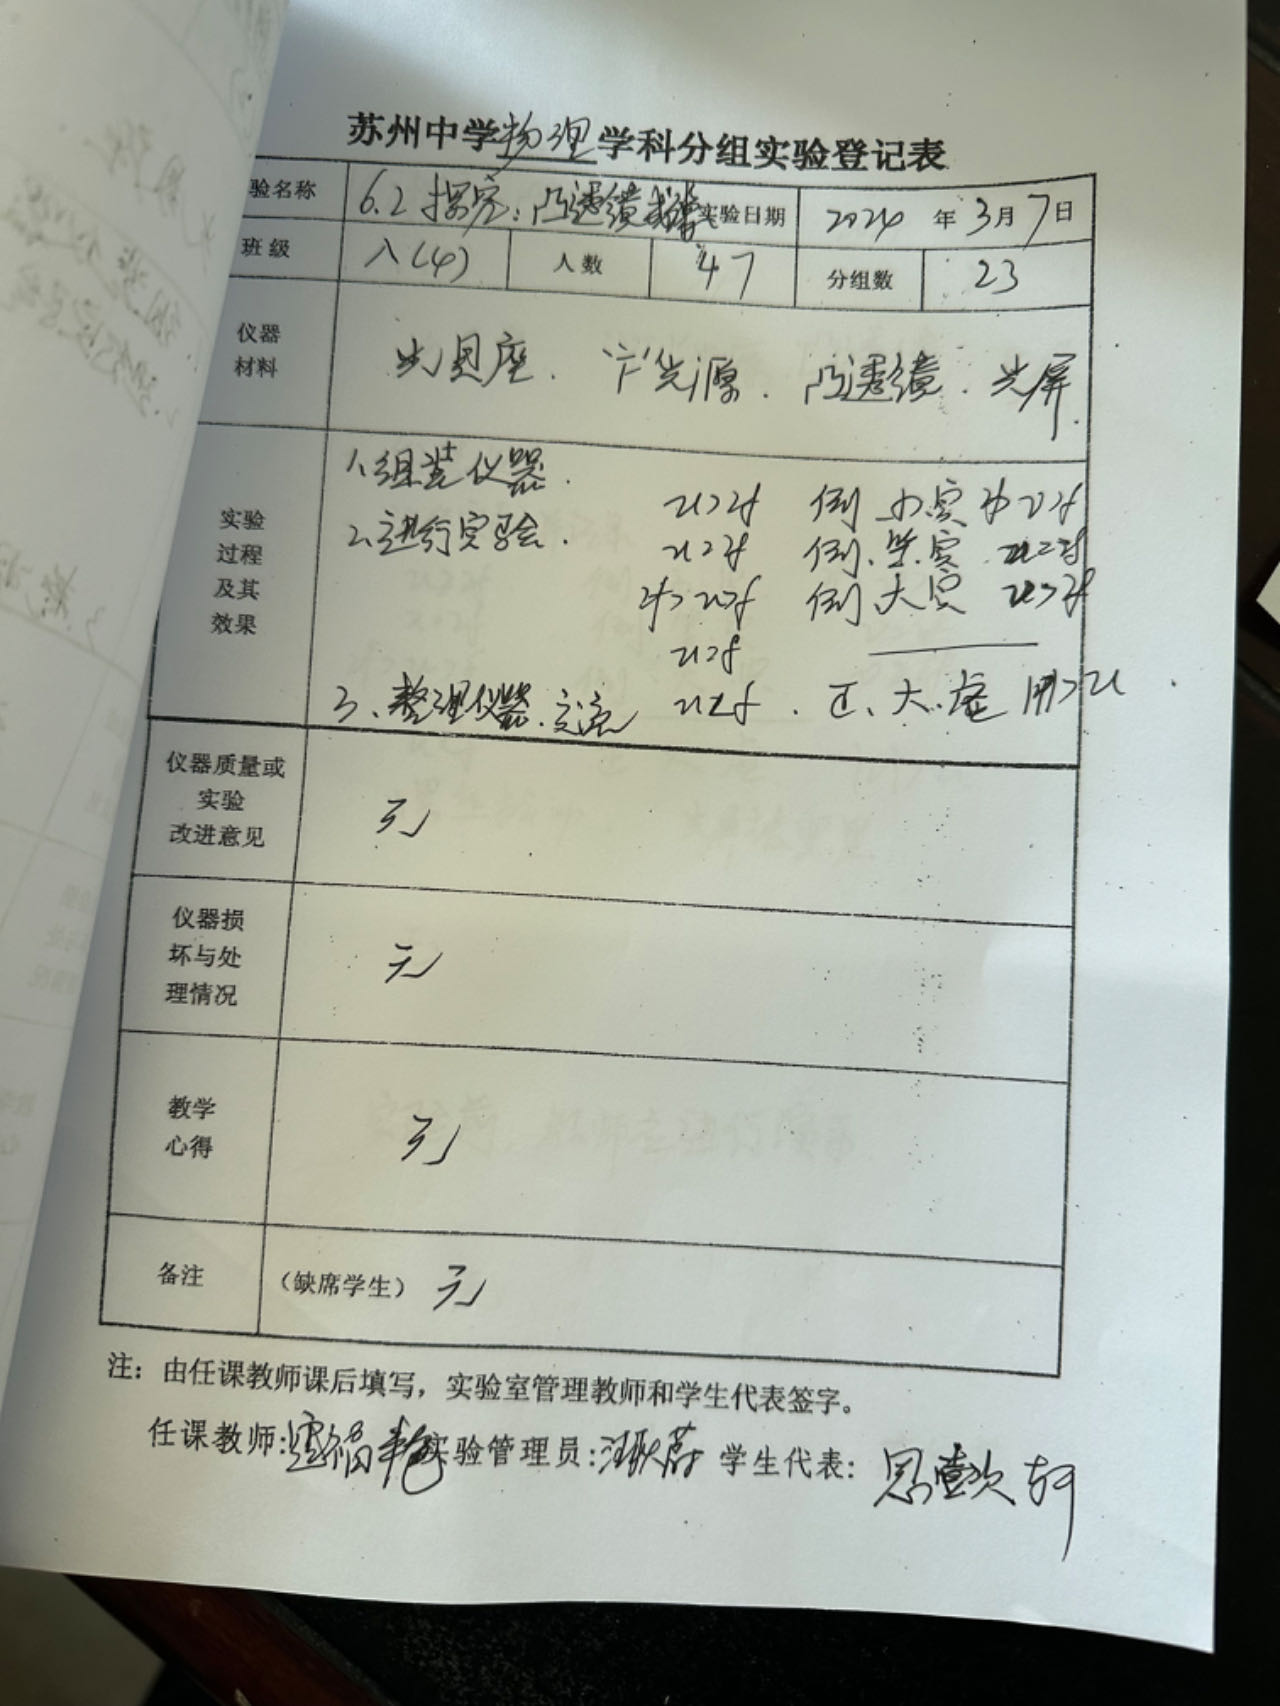 苏州中学物理学科分组实验登记表
验名称 6.2 探究:凸透镜成像 实验日期 2024 年 3月 7日
班级 八(4) 人数 47 分组数 23
仪器
材料
光具座. "F"光源. 凸透镜. 光屏.
实验
过程
及其
效果
1.组装仪器.
2.进行实验.
u>2f 倒 小 实
u=2f 倒. 实
2f>u>f 倒 大 实
u=f
3、整理仪器.交流 u<f. 正、大.虚
仪器质量或
实验
改进意见
无
仪器损
坏与处
理情况
无
教学
心得
无
备注 (缺席学生) 无
注:由任课教师课后填写,实验室管理教师和学生代表签字。
任课教师: 实验管理员: 学生代表: